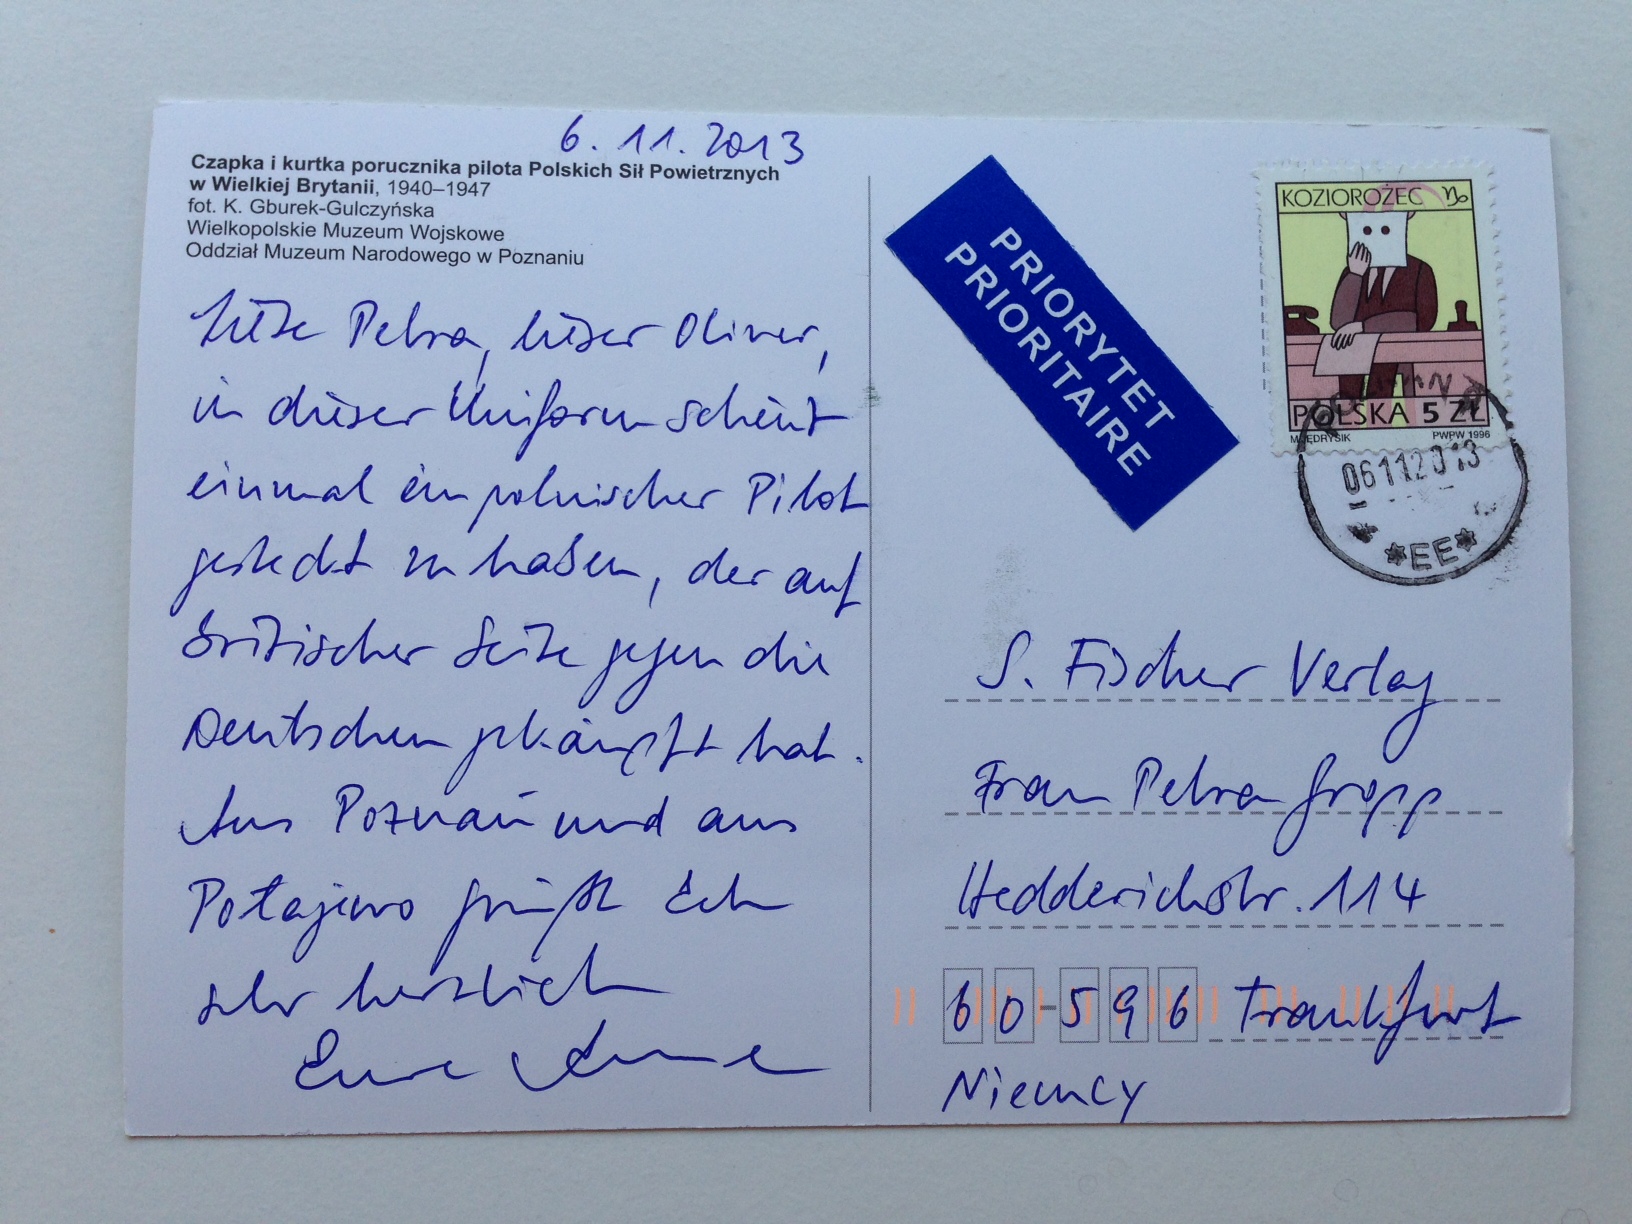 6. 11. 2013
Czapka i kurtka porucznika pilota Polskich Sił Powietrznych
w Wielkiej Brytanii, 1940–1947
fot. K. Gburek-Gulczyńska
Wielkopolskie Muzeum Wojskowe
Oddział Muzeum Narodowego w Poznaniu
Liebe Petra, lieber Oliver,
in dieser Uniform scheint
einmal ein polnischer Pilot
gesteckt zu haben, der auf
britischer Seite gegen die
Deutschen gekämpft hat.
Aus Poznań und aus
Potajewo grüßt Euch
sehr herzlich
Eure
PRIORYTET
PRIORITAIRE
KOZIOROŻEC
POLSKA 5 ZŁ
M. JĘDRYSIK PWPW 1996
06112013
*EE*
S. Fischer Verlag
Frau Petra Gropp
Hedderichstr. 114
60-596 Frankfurt
Niemcy